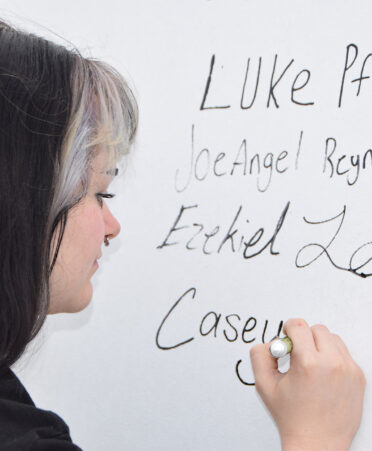 Luke Pf
JoeAngel Reyn
Ezekiel Le
Casey